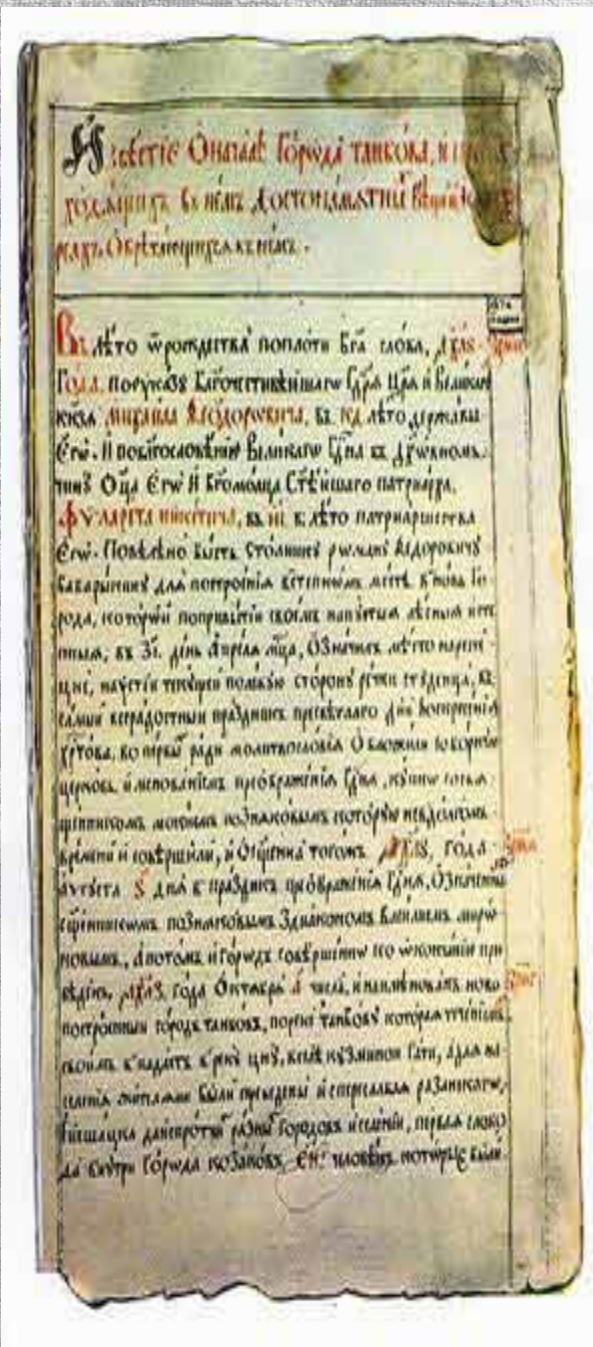 Извѣстїе Ѻ началѣ Го́рѡда танбо́ва, и
ходѧщихъ въ не́мъ достопамѧтны́ вѣще́
рѧхъ, Ѻбрѣта́ющихсѧ въ не́мъ.
Въ лѣто ѿ рождества̀ поплоти бг҃а сло́ва, ҂ахл҃ѕ
Го́да, поуказꙋ̀ благочести́вѣйшагѡ гдⷭ҇рѧ цр҃ѧ и вели́кагѡ
кнѧ҃зѧ михаи́ла ѳео́дорѡвича, въ к҃д лѣто держа́вы
Єгѡ̀. И поблгⷭ҇ослове́нїю вели́кагѡ гдⷭ҇на въ дꙋхѡ́вномъ
чинꙋ̀ Ѻц҃а Єгѡ̀ и бг҃омо́лца ст҃ѣ́йшаго патрїа́рха,
Фѷларе́та ники́тича, въ лѣто патрїа́ршества
Єгѡ̀. Повелѣно бы́сть сто́лникꙋ рѡма́нꙋ ѳе́доровичꙋ
бабары́кинꙋ для построе́нїѧ встепно́мъ ме́стѣ вно́вь го́
рода, кото́рый поприбы́тїи свое́мъ напꙋсты́ѧ лѣсны́ѧ истѣ
пны́ѧ, въ з҃і. де́нь а҆прѣ́лѧ мц҃а, Ѻзна́чилъ мѣ́сто нарекѣ̀
цнѣ̀, наꙋ́стїи текꙋ́щей полѣ́вꙋю сто́ронꙋ рѣ́чки стꙋденца̀, въ
са́мый всера́достный пра́здникъ пресвѣ́тлаго днѧ̀ воскресе́нїѧ
хрⷭ҇то́ва, во первы́ ра́ди молитвосло́вїѧ Ѻбложи́ли собо́рнꙋю
це́рковь, именова́нїемъ преѡбраже́нїѧ гдⷭ҇нѧ, кꙋ́пнѡ сосвѧ
ще́нникомъ позняко́вымъ кото́рꙋю невдо́лгомъ
вре́мени и соверши́ли, и ѻсщ҃енна̀ того́жъ ҂ахл҃ѕ, го́да
а҆́ѵгꙋста ѕ҃ днѧ̀ в пра́здникъ преѡбраже́нїѧ гдⷭ҇нѧ, Ѻзна́ченнымъ
сщ҃е́нникомъ позняко́вымъ здїа́кономъ васи́лїемъ миро́
новымъ, а пото́мъ и го́рѡдъ соверше́ннѡ ко ѡконча́нїю при
веде́нъ, ҂ахл҃з, го́да Октѧбрѧ̀ а҃ числа̀, и наименова́нъ ново
постро́енный го́родъ танбо́въ, поре́кѣ танбо́вꙋ кото́раѧ тече́нїемъ
свои́мъ впада́етъ врѣкꙋ̀ цнꙋ̀, вселѣ̀ кꙋзминой га́ти, а длѧ на
селе́нїѧ жи́телѧми бы́ли преведены̀ и спересла́влѧ рѧза́нскагѡ,
ѝсша́цка да и спро́тчи ра́зны городо́въ и селе́нїй, пе́рваѧ слобо
да внꙋтрѝ го́рѡда козако́въ, человѣ́къ кото́рые бы́ли